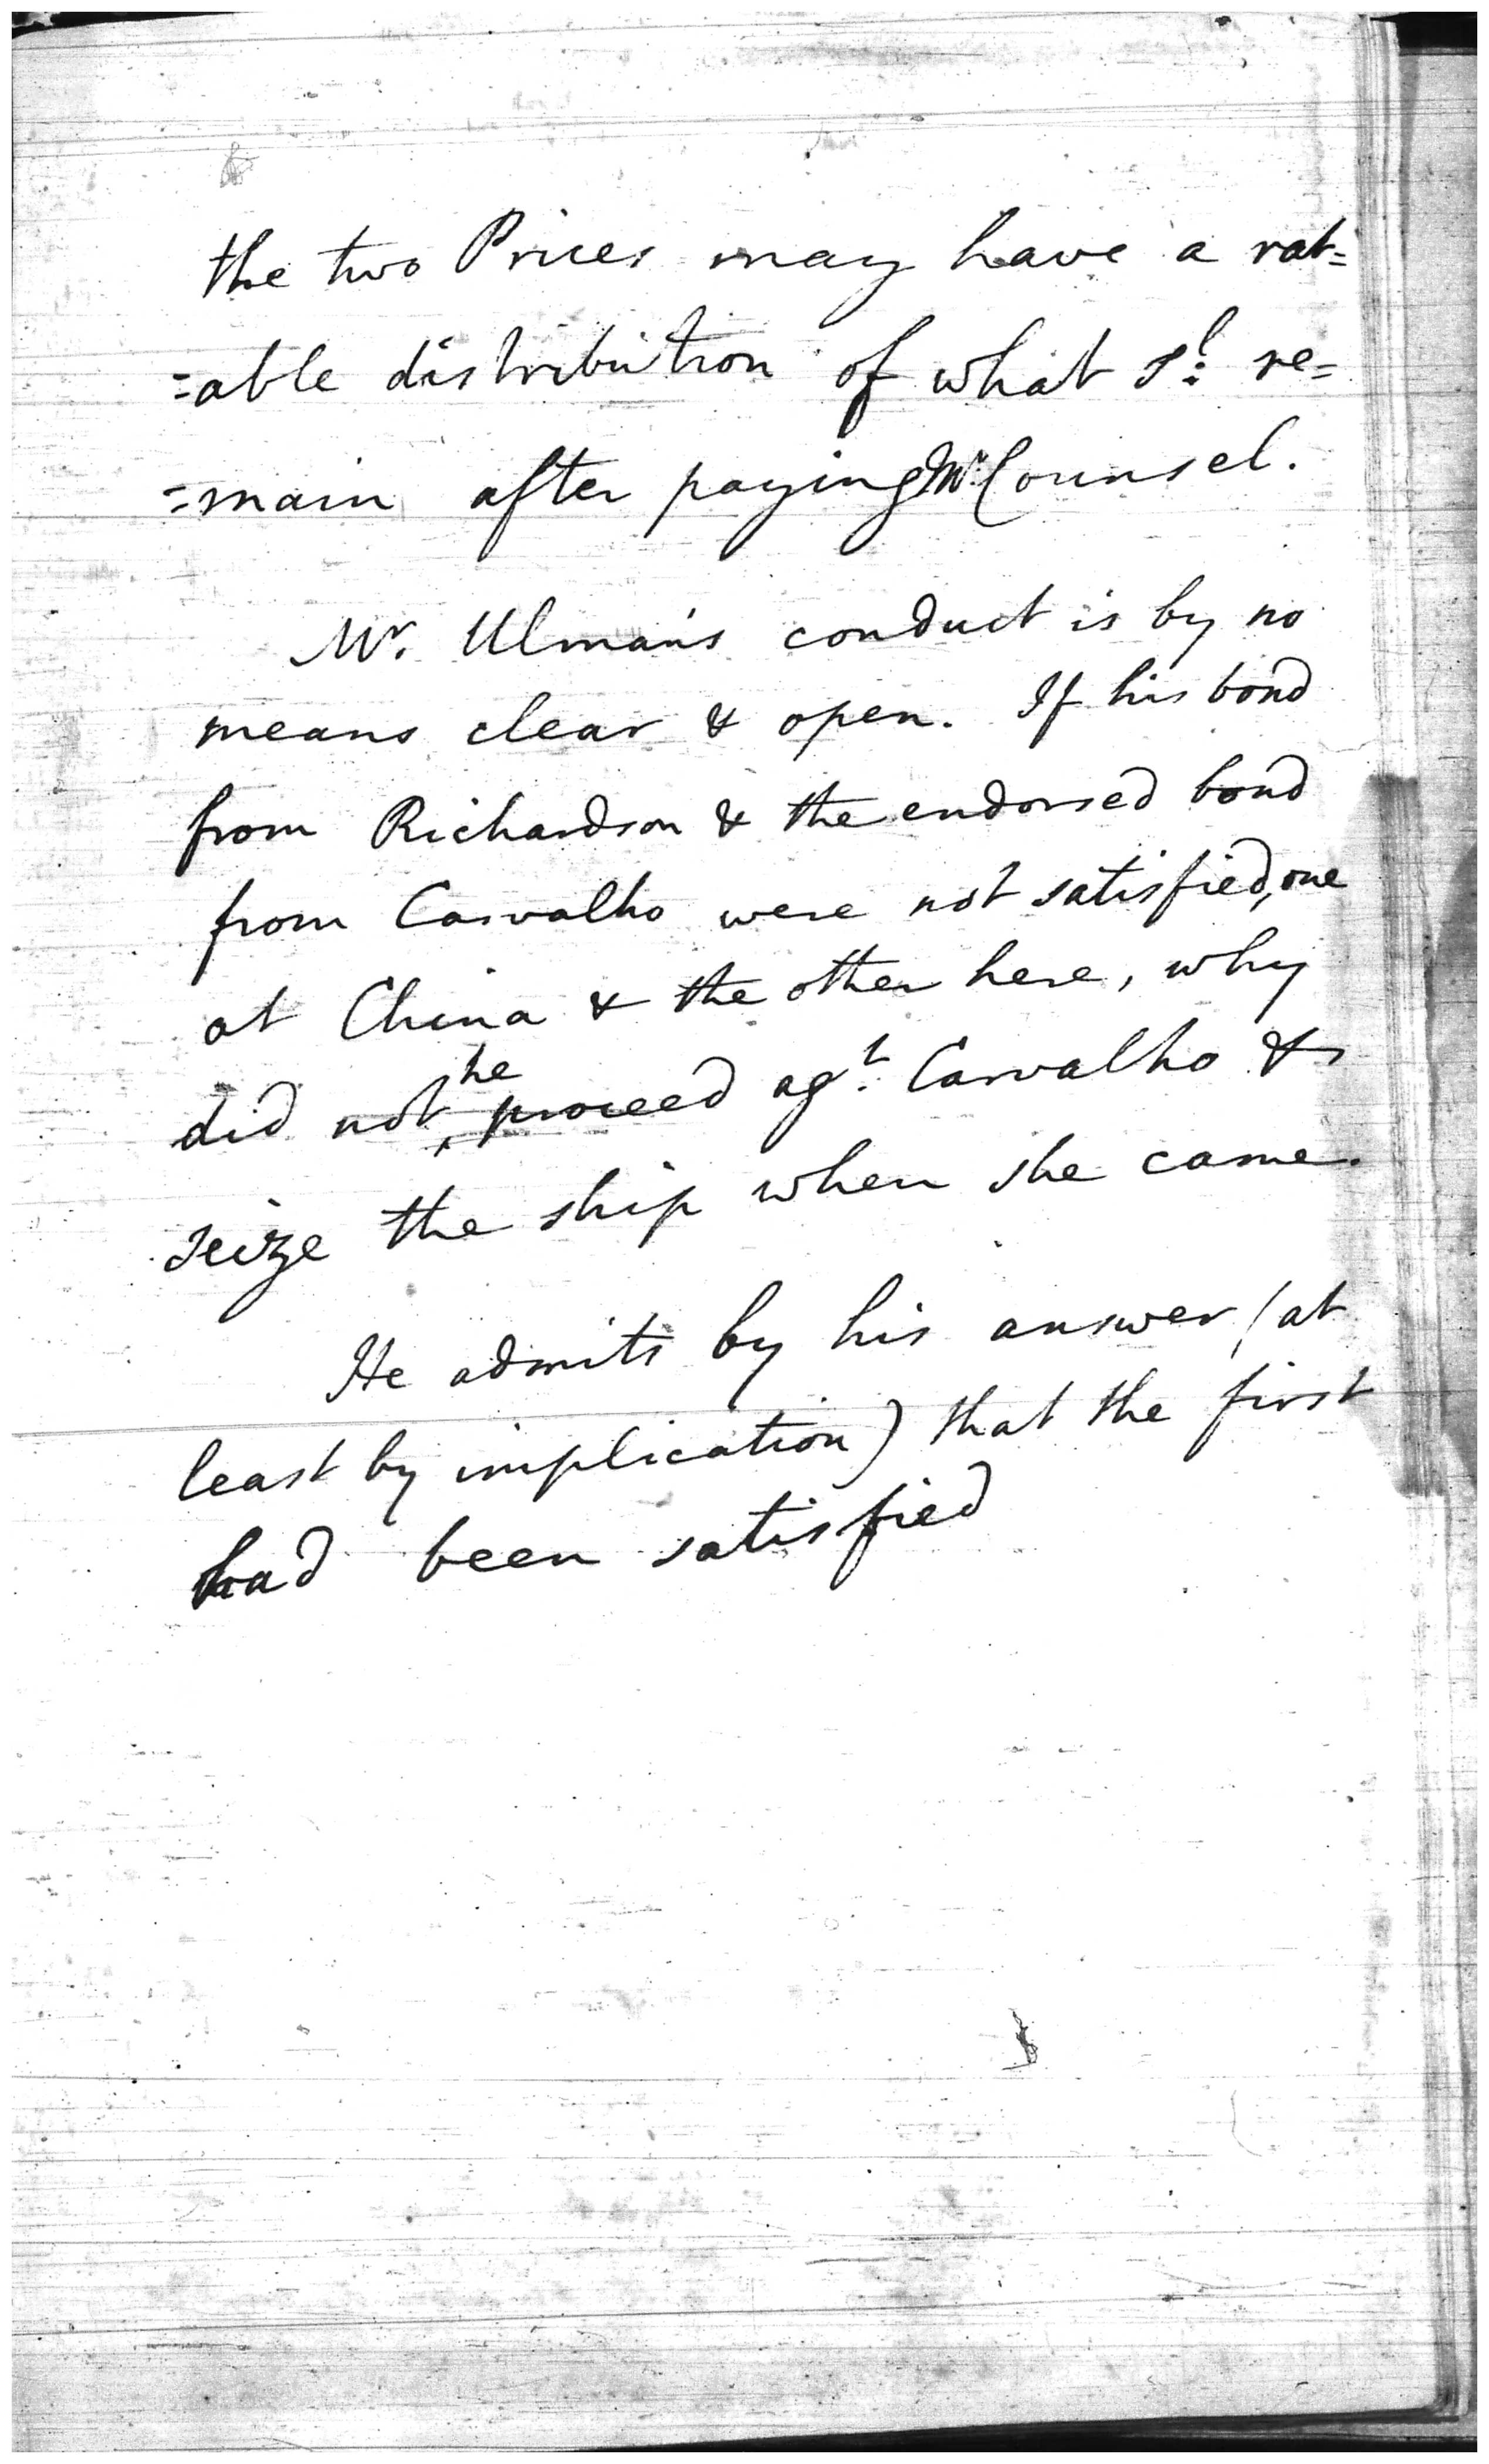 the two Prices may have a rat=
=able distribution of what sd: re=
=main after paying Mr. Counsel.
Mr. Ulman's conduct is by no
means clear & open. If his bond
from Richardson & the endorsed bond
from Carvalho were not satisfied, one
at China & the other here, why
did not he proceed agt. Carvalho &
seize the ship when she came.
He admits by his answer (at
least by implication) that the first
had been satisfied